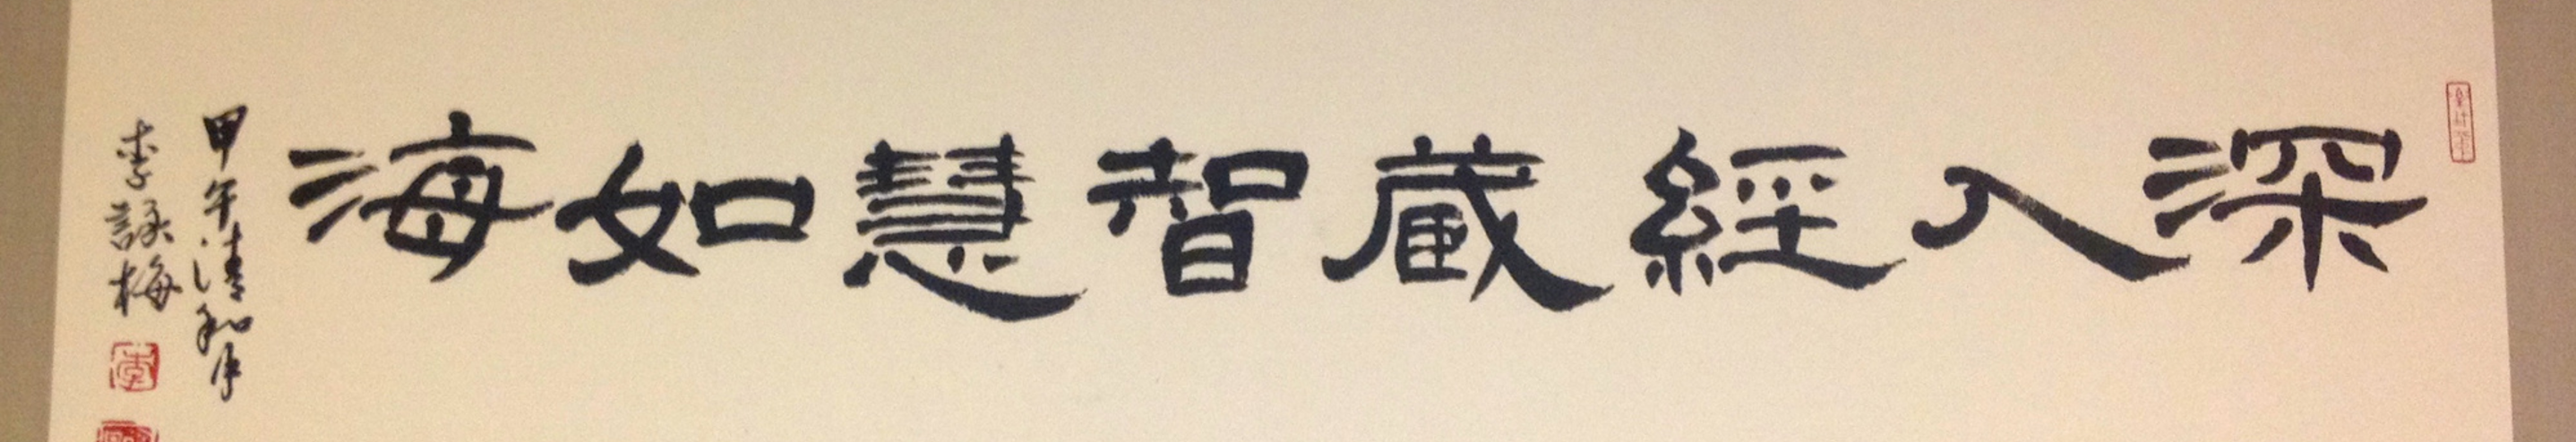 深入經藏智慧如海
甲午清和月
李詠梅